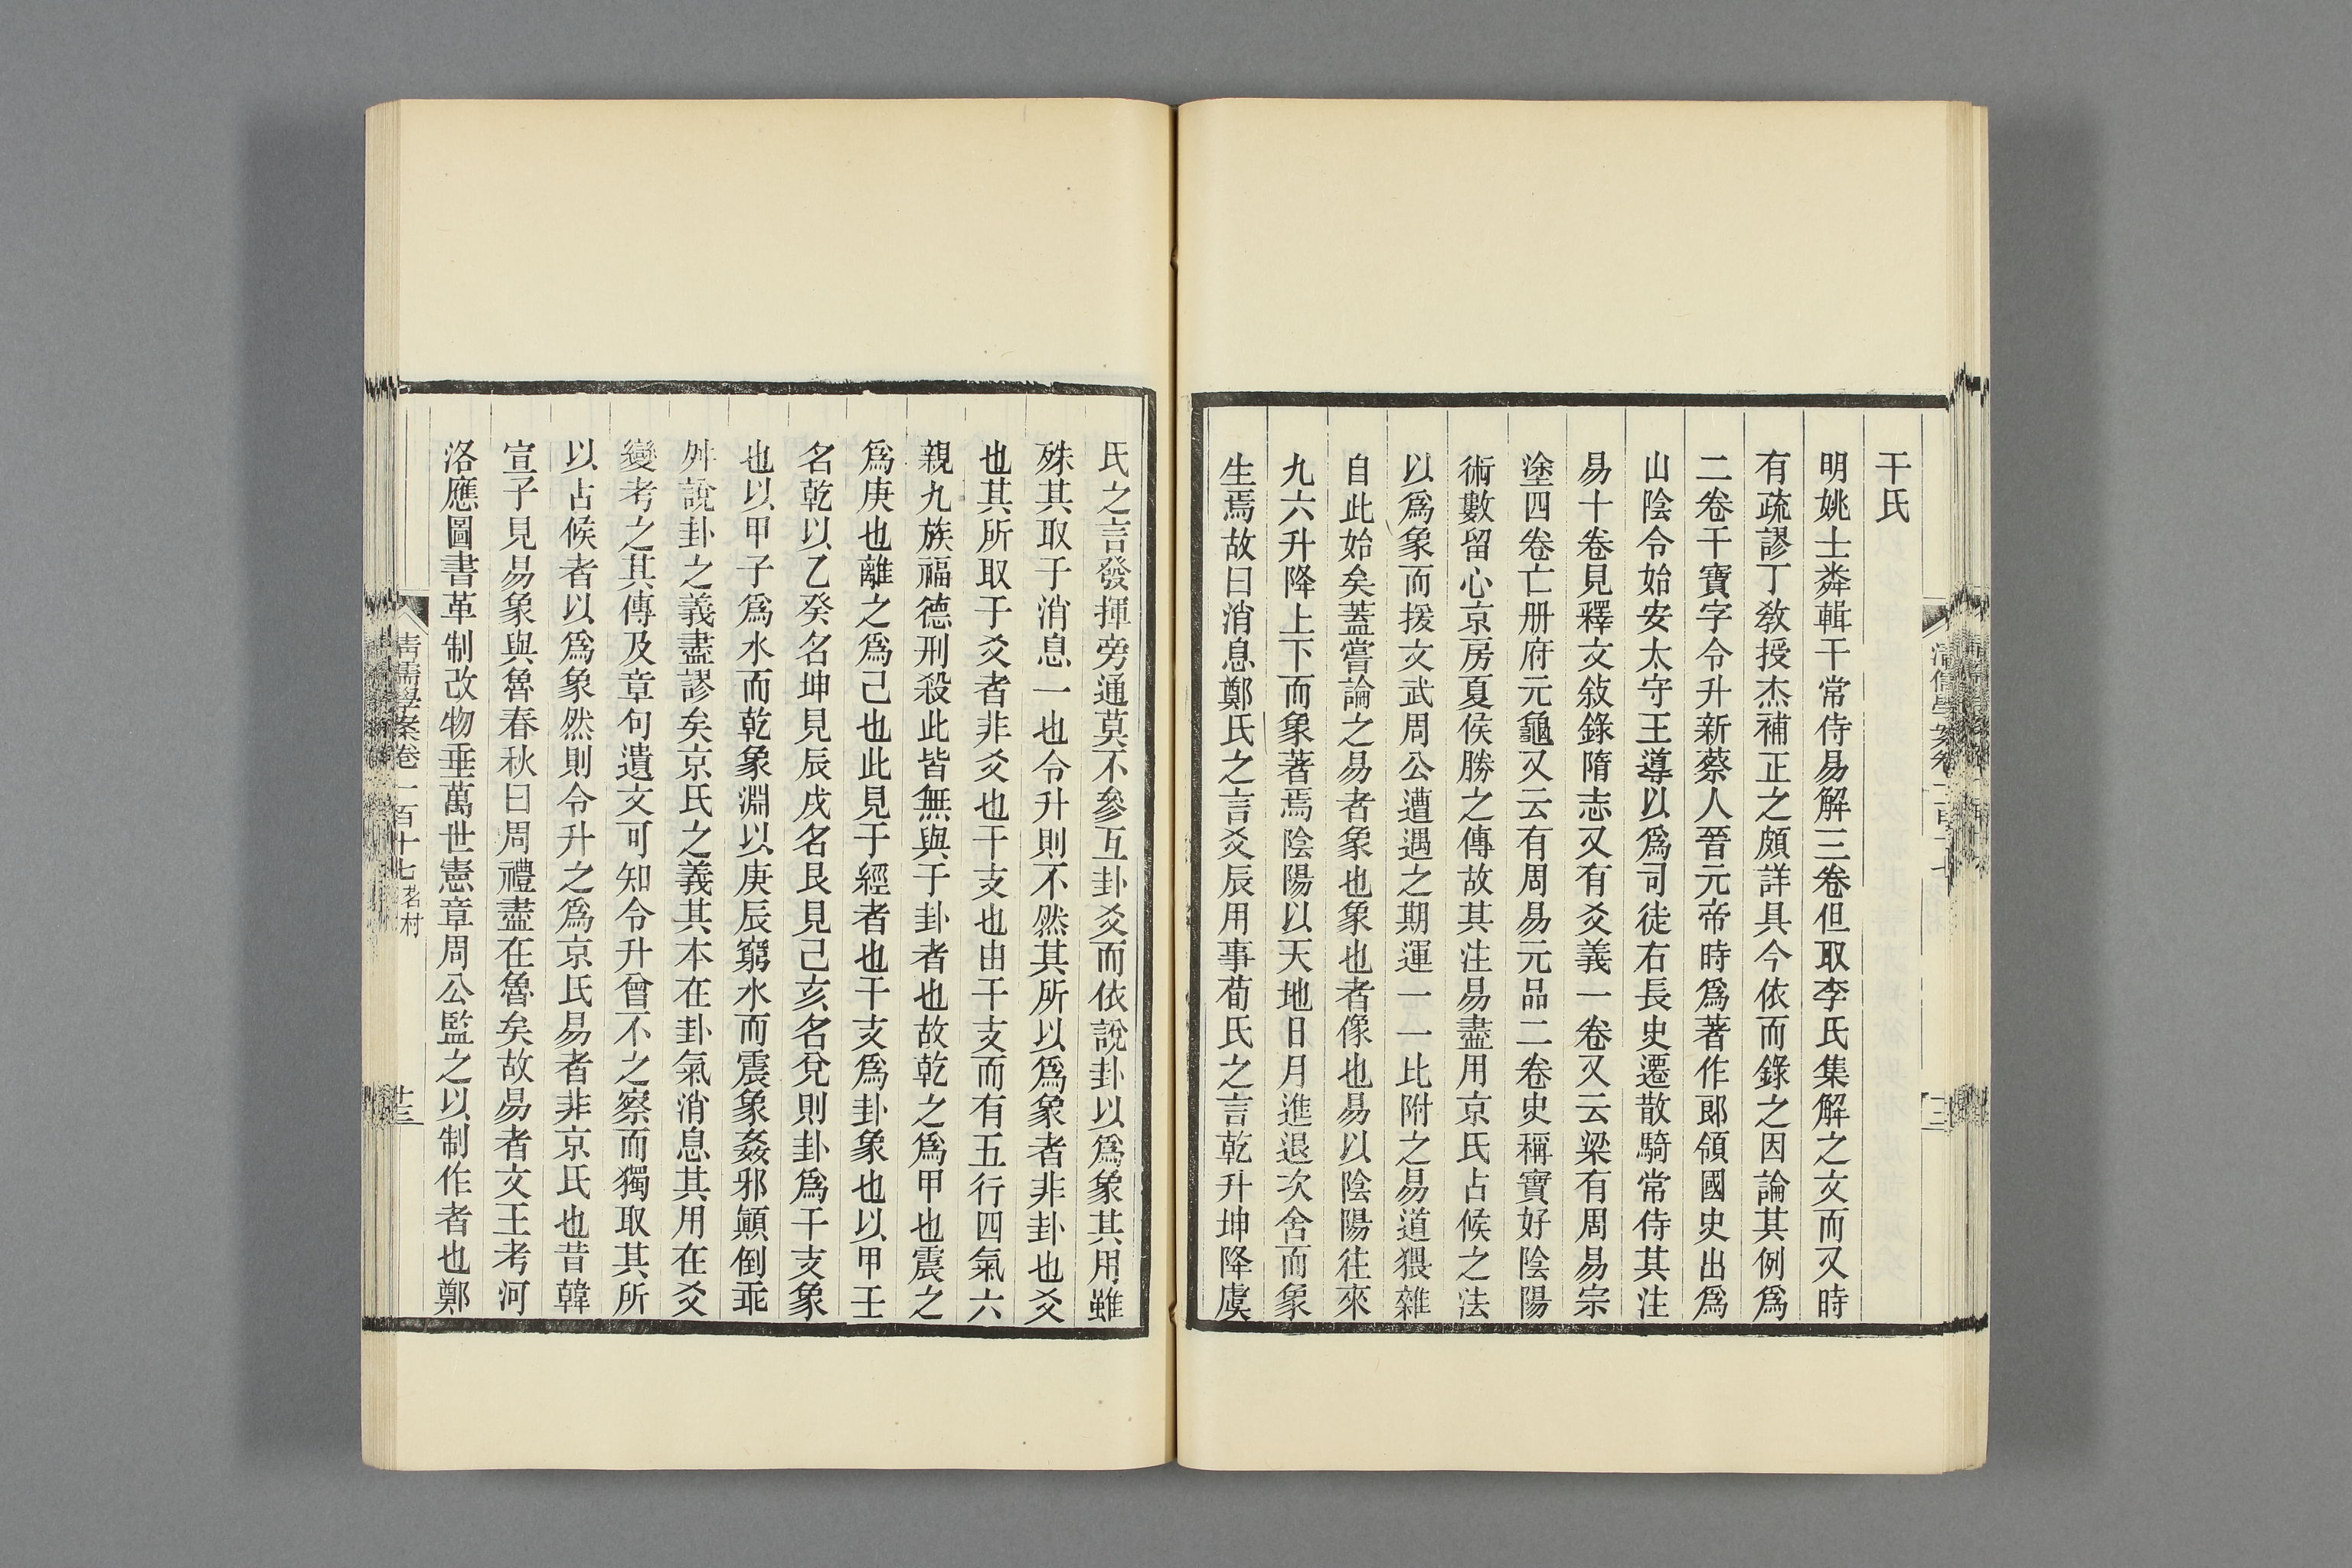 干氏
明姚士粦輯干常侍易解三卷但取李氏集解之文而又時
有疏謬丁教授杰補正之頗詳具今依而錄之因論其例爲
二卷干寶字令升新蔡人晉元帝時爲著作郎領國史出爲
山陰令始安太守王導以爲司徒右長史遷散騎常侍其注
易十卷見釋文敍錄隋志又有爻義一卷又云梁有周易宗
塗四卷亡册府元龜又云有周易元品二卷史稱寶好陰陽
術數留心京房夏侯勝之傳故其注易盡用京氏占候之法
以爲象而援文武周公遭遇之期運一一比附之易道猥雜
自此始矣蓋嘗論之易者象也象也者像也易以陰陽往來
九六升降上下而象著焉陰陽以天地日月進退次舍而象
生焉故曰消息鄭氏之言爻辰用事荀氏之言乾升坤降虞
氏之言發揮旁通莫不參互卦爻而依說卦以爲象其用雖
殊其取于消息一也令升則不然其所以爲象者非卦也爻
也其所取于爻者非爻也干支也由干支而有五行四氣六
親九族福德刑殺此皆無與于卦者也故乾之爲甲也震之
爲庚也離之爲己也此見于經者也干支爲卦象也以甲壬
名乾以乙癸名坤見辰戌名艮見己亥名兌則卦爲干支象
也以甲子爲水而乾象淵以庚辰窮水而震象姦邪顚倒乖
舛說卦之義盡謬矣京氏之義其本在卦氣消息其用在爻
變考之其傳及章句遺文可知令升曾不之察而獨取其所
以占候者以爲象然則令升之爲京氏易者非京氏也昔韓
宣子見易象與魯春秋曰周禮盡在魯矣故易者文王考河
洛應圖書革制改物垂萬世憲章周公監之以制作者也鄭
清儒學案卷一百十七 茗村